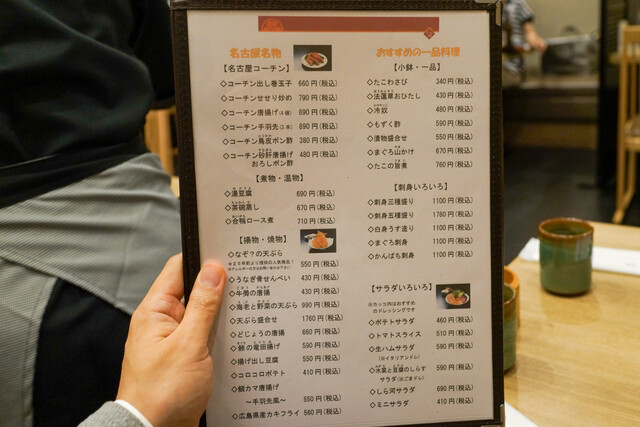 名古屋名物
【名古屋コーチン】
◇コーチン出し巻玉子 660円(税込)
◇コーチンせせり炒め 790円(税込)
◇コーチン唐揚げ 890円(税込)
◇コーチン手羽先 890円(税込)
◇コーチン鳥皮ポン酢 380円(税込)
◇コーチン砂肝唐揚げ 480円(税込)
おろしポン酢
【煮物・温物】
◇湯豆腐 690円(税込)
◇茶碗蒸し 670円(税込)
◇合鴨ロース煮 710円(税込)
【揚物・焼物】
◇なぞ?の天ぷら 550円(税込)
◇うなぎ骨せんべい 430円(税込)
◇牛蒡の唐揚 430円(税込)
◇海老と野菜の天ぷら 990円(税込)
◇天ぷら盛合せ 1760円(税込)
◇どじょうの唐揚 660円(税込)
◇鯖の竜田揚げ 590円(税込)
◇揚げ出し豆腐 550円(税込)
◇コロコロポテト 410円(税込)
◇鯛カマ唐揚げ
~手羽先風~ 550円(税込)
◇広島県産カキフライ 560円(税込)
おすすめの一品料理
【小鉢・一品】
◇たこわさび 340円(税込)
◇法蓮草おひたし 430円(税込)
◇冷奴 480円(税込)
◇もずく酢 590円(税込)
◇漬物盛合せ 550円(税込)
◇まぐろ山かけ 670円(税込)
◇たこの旨煮 760円(税込)
【刺身いろいろ】
◇刺身三種盛り 1100円(税込)
◇刺身五種盛り 1760円(税込)
◇白身うす造り 1100円(税込)
◇まぐろ刺身 1100円(税込)
◇かんぱち刺身 1100円(税込)
【サラダいろいろ】
※カッコ内はおすすめ
のドレッシングです
◇ポテトサラダ 460円(税込)
◇トマトスライス 510円(税込)
◇生ハムサラダ 590円(税込)
(※イタリアンドレ)
◇水菜と豆腐のしらす
サラダ(※ごまドレ) 590円(税込)
◇しら河サラダ 690円(税込)
◇ミニサラダ 410円(税込)